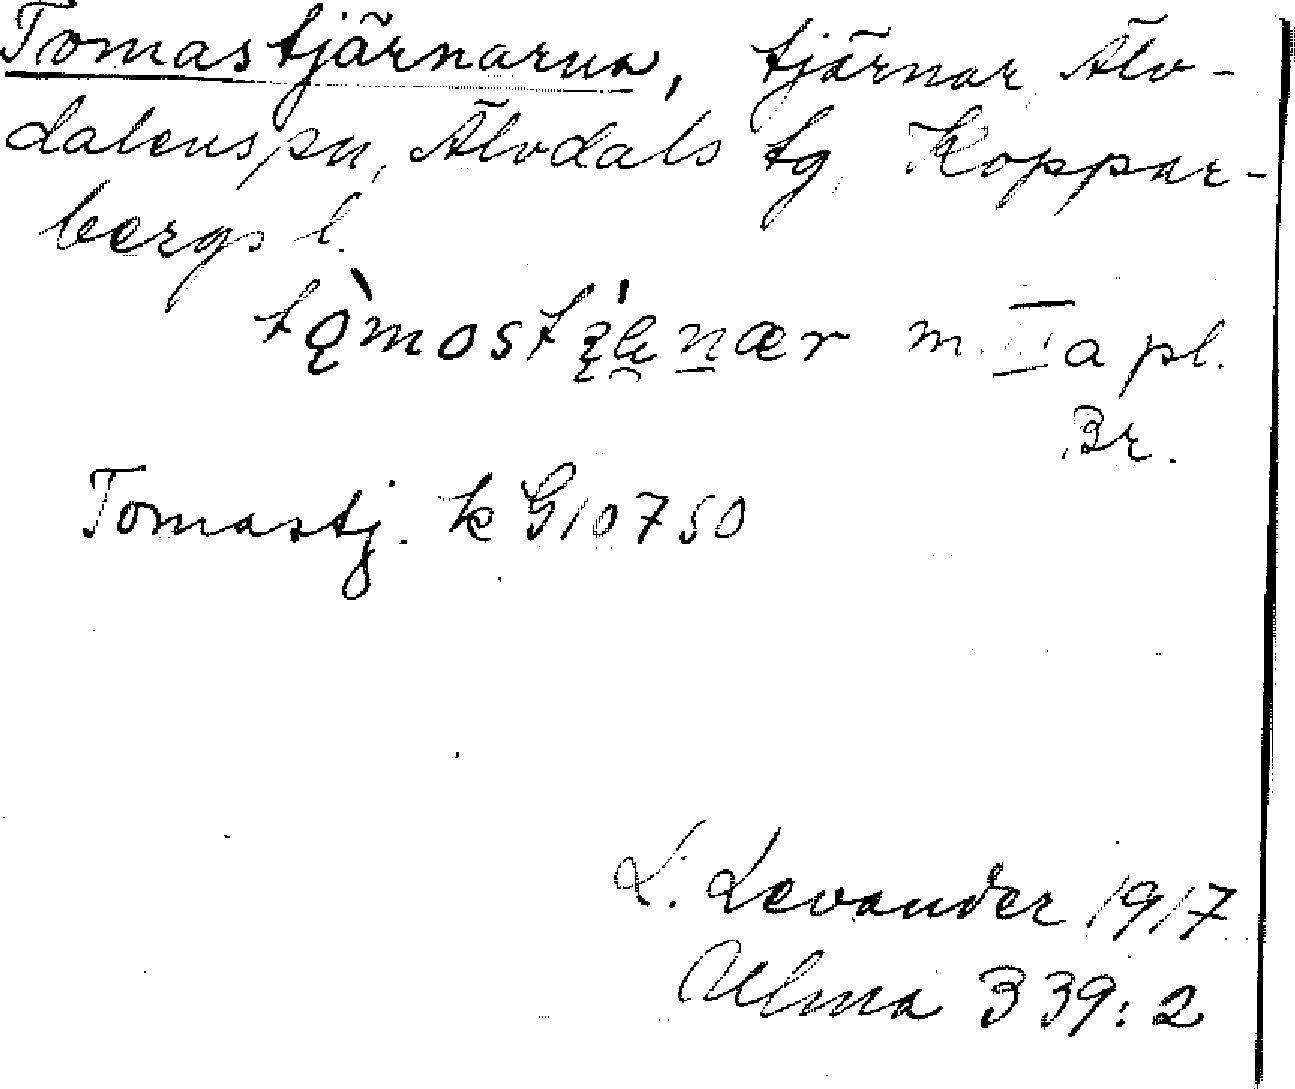 Tomastjärnarna, tjärnar Älv-
dalens sn, Älvdals tg, Koppar-
bergs l.
m. III a pl.
Br.
Tomastj. k G10750
L. Levander 1917
Ulma 339:2